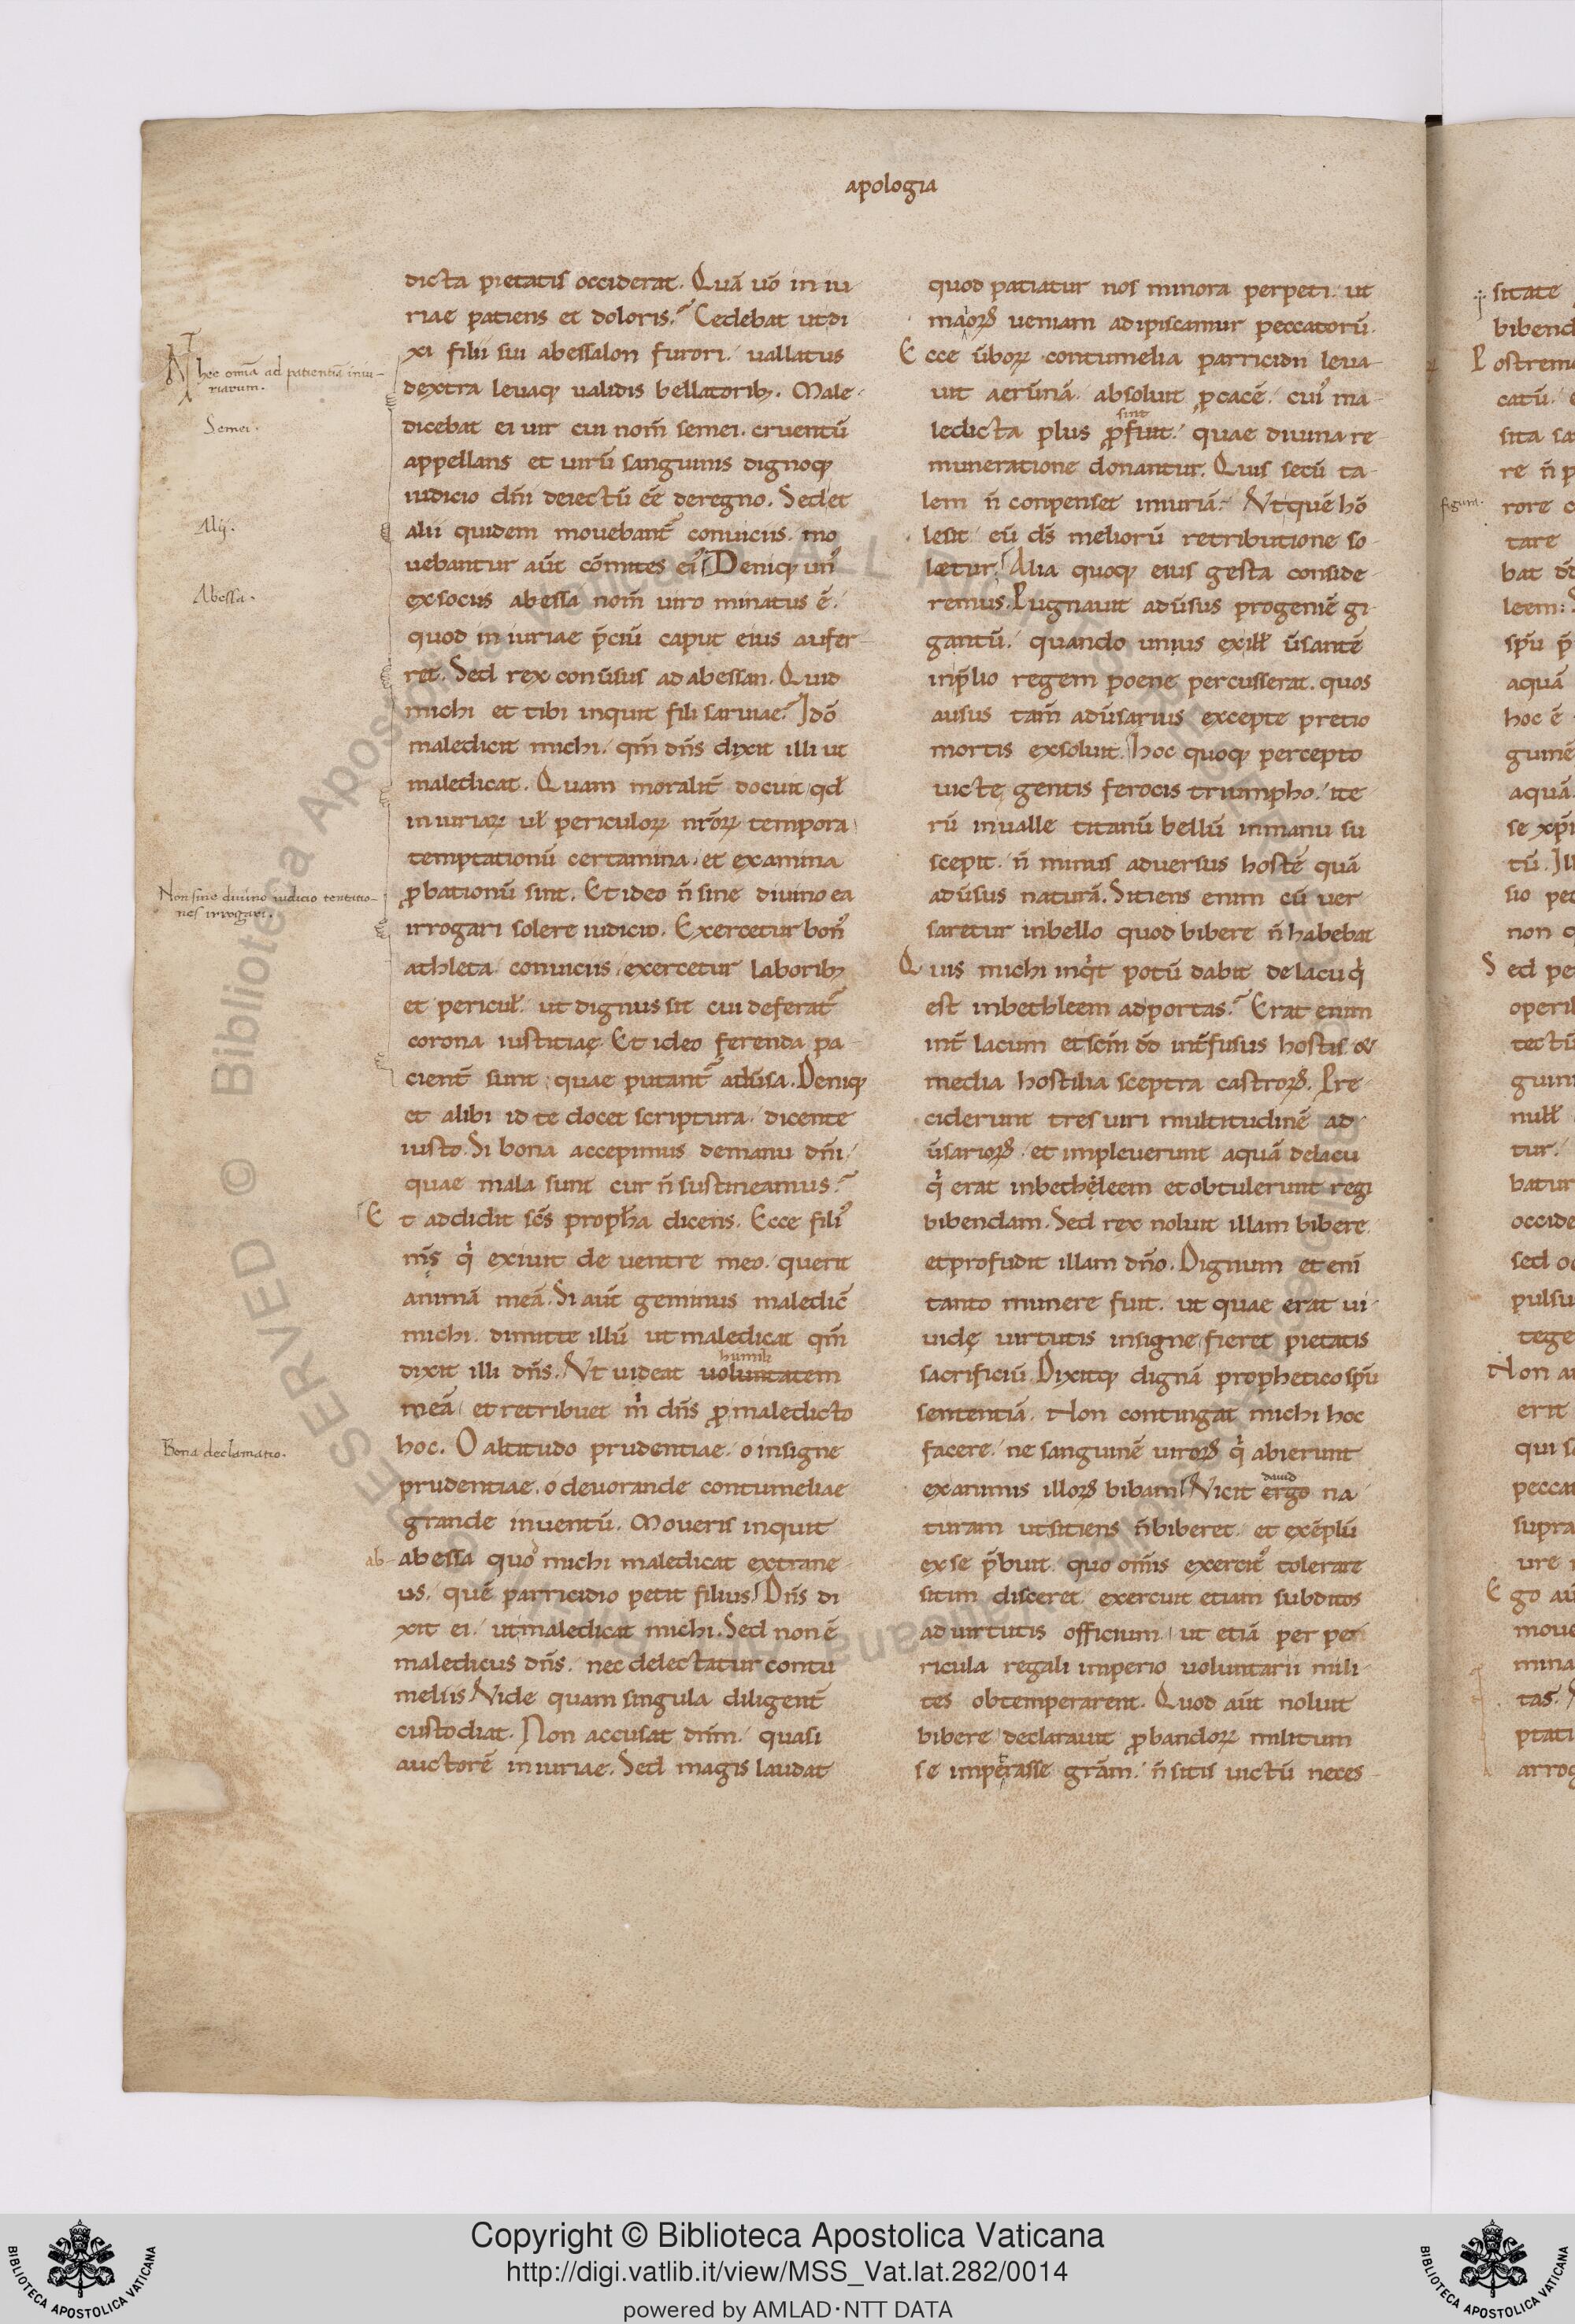 apologia
dicta pietatis occiderat. Quā u̅o in iu
riae patiens et doloris? Cedebat ut di
xi filii sui abessalon furori. uallatus
dextra leuaq; ualidis bellatorib;. Male
dicebat ei uir cui nom̅ semei. cruentū
appellans et uirū sanguinis dignoq;
iudicio dn̅i deiectū ee̅ de regno. Sed et
alii quidem mouebant̅ conuiciis. mo
uebantur aut̅ cōmites ei᾿. Deniq; un᾿
ex sociis abessa nom̅ uiro minatus ē.
quod in iuriae p̅ciū caput eius aufer
ret. Sed rex conu̅sus ad abessan. Quid
michi et tibi inquit fili saruiae? Ideo̅
maledicit michi. qm̅ dn̅s dixit illi ut
maledicat. Quam moralit̅ docuit qd̅
iniuriaꝝ ul̅ periculoꝝ nr̅oꝝ tempora
temptationū certamina. et examina
ꝓbationū sint. Et ideo n̅ sine diuino ea
irrogari solere iudicio. Exercetur bon᾿
athleta conuiciis. exercetur laborib;
et pericul̅. ut dignus sit cui deferat̅
corona iustitiae. Et ideo ferenda pa
cient̅ sunt quae putant̅ adu̅sa. Deniq;
et alibi id te docet scriptura. dicente
iusto. Si bona accepimus de manu dn̅i.
quae mala sunt cur n̅ sustineamus?
Et addidit sc̅s proph̅a dicens. Ecce fili᾿
m̅s q̇ exiuit de uentre meo. querit
animā meā. Si aut̅ geminus maledic̅
michi. dimitte illū ut maledicat qm̅
humilit
dixit illi dn̅s. Vt uideat uoluntatem
meā et retribuet ṁ dn̅s ꝓ maledicto
hoc. O altitudo prudentiae. o insigne
prudentiae. o deuorande contumeliae
grande inuentū. Moueris inquit
ab- abessa quo michi maledicat extrane
us. quē parricidio petit filius. Dn̅s di
xit ei. ut maledicat michi. Sed non ē
maledicus dn̅s. nec delectatur contu
meliis. Vide quam singula diligent̅
custodiat. Non accusat dn̅m. quasi
auctorē iniuriae. Sed magis laudat
quod patiatur nos minora perpeti. ut
maioꝝ ueniam adipiscamur peccatorū.
Ecce u̅boꝝ contumelia parricidii leua
uit aerūnā. absoluit ꝓcacē. cui᾿ ma
sint
ledicta plus ꝓfuit. quae diuina re
muneratione donantur. Quis secū ta
lem n̅ conpenset iniuriā. Vt quē ho̅
lesit. cū d̅s meliorū retributione so
letur. Alia quoq; eius gesta conside
remus. Pugnauit adu̅sus progeniē gi
gantū. quando unius ex ill̅ u̅santē
in p̅lio regem poene percusserat. quos
ausus tam̅ adu̅sarius excepte pretio
mortis exsoluit. Hoc quoq; percepto
uictę gentis ferocis triumpho. ite
rū in ualle titanū bellū in manu su
scepit. n̅ minus aduersus hostē quā
adu̅sus naturā. Sitiens enim cū uer
saretur in bello quod bibere n̅ habebat
Quis michi inq̇t potū dabit de lacu q̇
est in bethleem ad portas? Erat enim
int̅ lacum et sc̅m dd̅ int̅fusus hostis &
media hostilia sceptra castroꝝ. Pre
ciderunt tres uiri multitudinē ad
u̅sarioꝝ. et impleuerunt aquā de lacu
q̇ erat in bethęleem et obtulerunt regi
bibendam. Sed rex noluit illam bibere.
et profudit illam dn̅o. Dignum et enī
tanto munere fuit. ut quae erat ui
uidę uirtutis insigne fieret pietatis
sacrificiū. Dixitq; dignā prophetico sp̅u
sententiā. Non contingat michi hoc
facere. ne sanguinē uiroꝝ q̇ abierunt
dauid
ex animis illoꝝ bibam. Vicit ergo na
turam ut sitiens n̅ biberet. et exēplū
ex se p̅buit. quo om̅is exercit᾿ tolerare
sitim disceret. exercuit etiam subditos
ad uirtutis officium. ut etiā per pe
ricula regali imperio uoluntarii mili
tes obtemperarent. Quod aut̅ noluit
bibere declarauit ꝓbandoꝝ militum
se imperasse gr̅am. n̅ sitis uictū neces
hec omīa ad patientiā iniu-
riarum.
Semei.
Alij.
Abessa.
Non sine diuino iudicio tentatio-
nes irrogari.
Bona declamatio.
figura.
sitate
bibend
Postrem
catū.
sita sa
re n̅ p
rore c
tare
bat dd̅
leem:
sp̅u p̅
aquā
hoc ē
guinē
aquā
se xp̅i
tū. Ill
sio pec
non q
Sed pe
operib
tectū
guin
null̅
tur.
batur
occide
sed oc
pulsu
tege
Non au
erit
qui s
peccat
supra
ure
Ego au̅
moue
mina
tas.
ptati
arrog
RESERVED © Biblioteca Apostolica Vaticana ALL RIGHTS
Copyright © Biblioteca Apostolica Vaticana
http://digi.vatlib.it/view/MSS_Vat.lat.282/0014
powered by AMLAD·NTT DATA
BIBLIOTECA APOSTOLICA VATICANA
BIBLIOTECA APOSTOLICA VATICANA